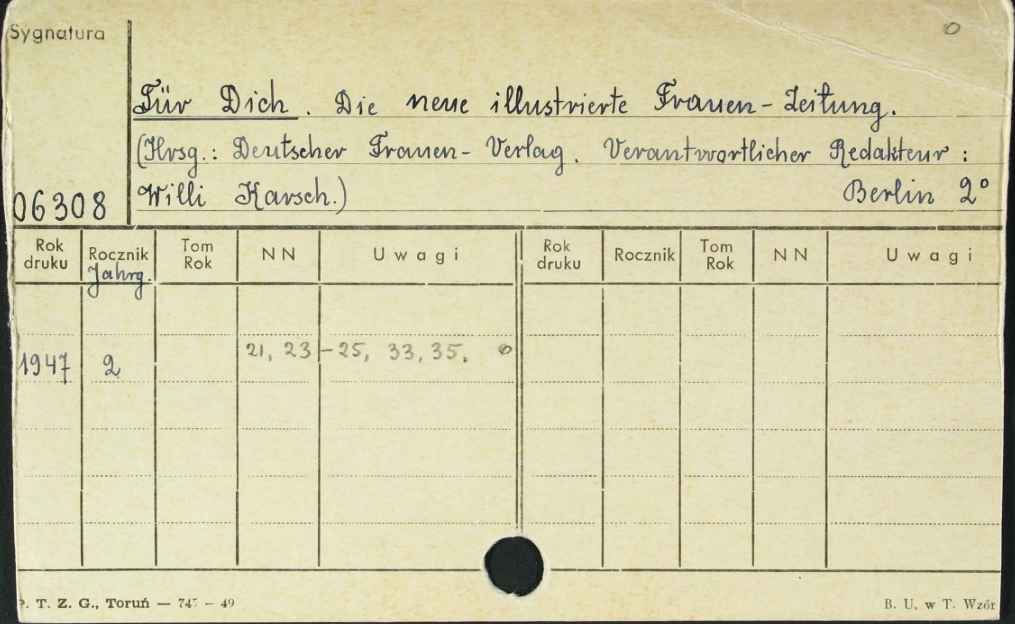 Sygnatura
Für Dich. Die neue illustrierte Frauen-Zeitung.
(Hrsg.: Deutscher Frauen-Verlag. Verantwortlicher Redakteur:
06308 Willi Karsch.) Berlin 2°
Rok druku Rocznik Tom Rok NN Uwagi Rok druku Rocznik Tom Rok NN Uwagi
Jahrg.
1947 2 21, 23-25, 33, 35.
P. T. Z. G., Toruń — 745 - 49 B. U. w T. Wzór